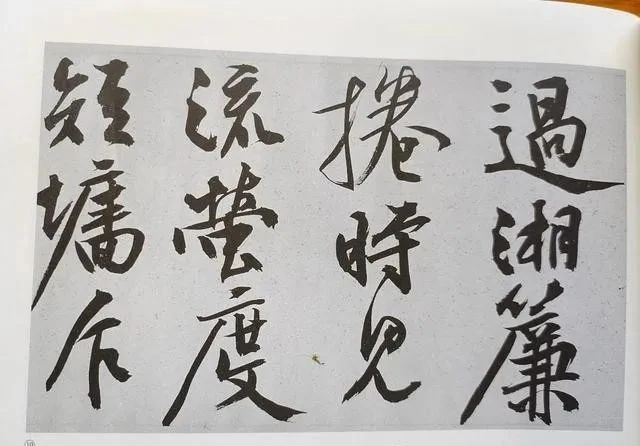 過湘簾
捲時見
流螢度
短墉乍